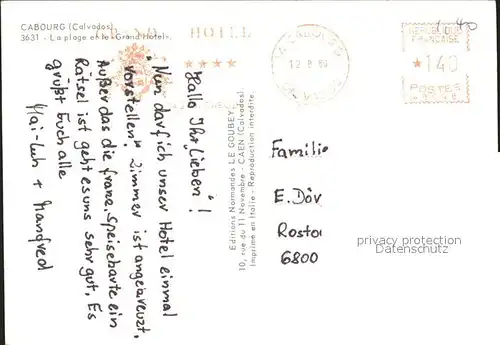 CABOURG (Calvados)
3631 - La plage et le «Grand Hôtel».
HOTEL
CABOURG
12 8
RÉPUBLIQUE
FRANÇAISE
140
POSTES
1,40
Hallo Ihr Lieben!
"Nun darf ich unser Hotel einmal
vorstellen" Zimmer ist angekreuzt.
Außer das die franz. Speisekarte ein
Rätsel ist geht es uns sehr gut. Es
grüßt Euch alle
Mai-Luh + Manfred
Editions Normandes LE GOUBEY
10, rue du 11 Novembre - CAEN (Calvados).
Imprimé en Italie - Reproduction interdite.
Familie
E. Dör
Rosto
6800
privacy protection
Datenschutz